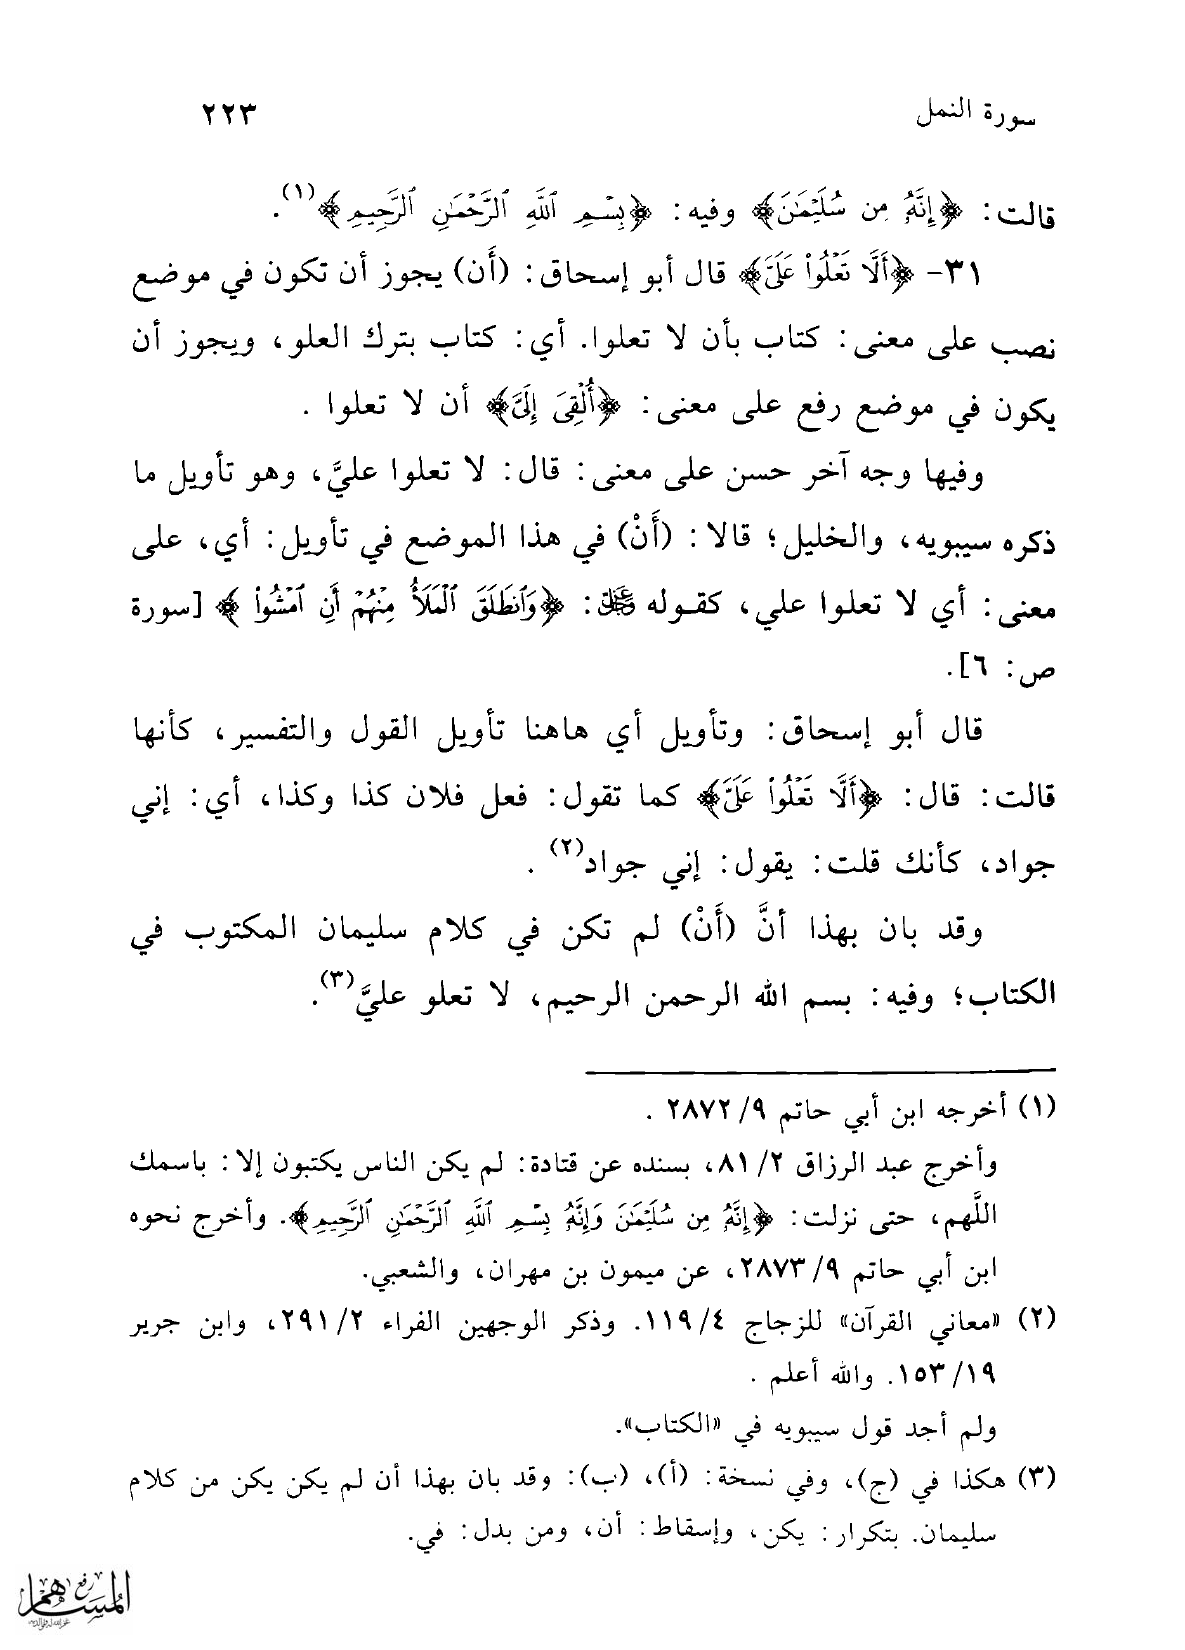 سورة النمل ٢٢٣
قالت: ﴿إِنَّهُ مِن سُلَيْمَٰنَ﴾ وفيه: ﴿بِسْمِ ٱللَّهِ ٱلرَّحْمَٰنِ ٱلرَّحِيمِ﴾(١).
٣١- ﴿أَلَّا تَعْلُوا۟ عَلَىَّ﴾ قال أبو إسحاق: (أَن) يجوز أن تكون في موضع
نصب على معنى: كتاب بأن لا تعلوا. أي: كتاب بترك العلو، ويجوز أن
يكون في موضع رفع على معنى: ﴿أُلْقِىَ إِلَىَّ﴾ أن لا تعلوا .
وفيها وجه آخر حسن على معنى: قال: لا تعلوا عليَّ، وهو تأويل ما
ذكره سيبويه، والخليل؛ قالا: (أَنْ) في هذا الموضع في تأويل: أي، على
معنى: أي لا تعلوا علي، كقوله ﷻ: ﴿وَٱنطَلَقَ ٱلْمَلَأُ مِنْهُمْ أَنِ ٱمْشُوا۟ ﴾ [سورة
ص: ٦].
قال أبو إسحاق: وتأويل أي هاهنا تأويل القول والتفسير، كأنها
قالت: قال: ﴿أَلَّا تَعْلُوا۟ عَلَىَّ﴾ كما تقول: فعل فلان كذا وكذا، أي: إني
جواد، كأنك قلت: يقول: إني جواد(٢) .
وقد بان بهذا أنَّ (أَنْ) لم تكن في كلام سليمان المكتوب في
الكتاب؛ وفيه: بسم الله الرحمن الرحيم، لا تعلو عليَّ(٣).
(١) أخرجه ابن أبي حاتم ٩/ ٢٨٧٢ .
وأخرج عبد الرزاق ٢/ ٨١، بسنده عن قتادة: لم يكن الناس يكتبون إلا: باسمك
اللَّهم، حتى نزلت: ﴿إِنَّهُ مِن سُلَيْمَٰنَ وَإِنَّهُ بِسْمِ ٱللَّهِ ٱلرَّحْمَٰنِ ٱلرَّحِيمِ﴾. وأخرج نحوه
ابن أبي حاتم ٩/ ٢٨٧٣، عن ميمون بن مهران، والشعبي.
(٢) «معاني القرآن» للزجاج ٤/ ١١٩. وذكر الوجهين الفراء ٢/ ٢٩١، وابن جرير
١٩/ ١٥٣. والله أعلم .
ولم أجد قول سيبويه في «الكتاب».
(٣) هكذا في (ج)، وفي نسخة: (أ)، (ب): وقد بان بهذا أن لم يكن يكن من كلام
سليمان. بتكرار: يكن، وإسقاط: أن، ومن بدل: في.